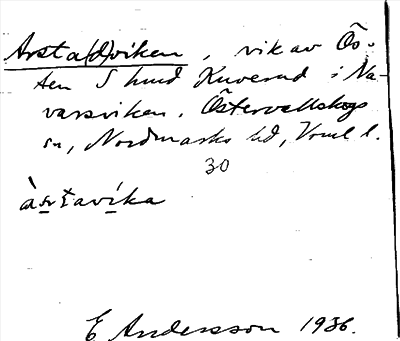 Arsta(d)viken, vik av Öös-
ten S hud Kuverud i Na-
varsviken. Östervallskogs
sn, Nordmarks hd, Vrml l.
30
àrs̱tavíka
E Andersson 1936.